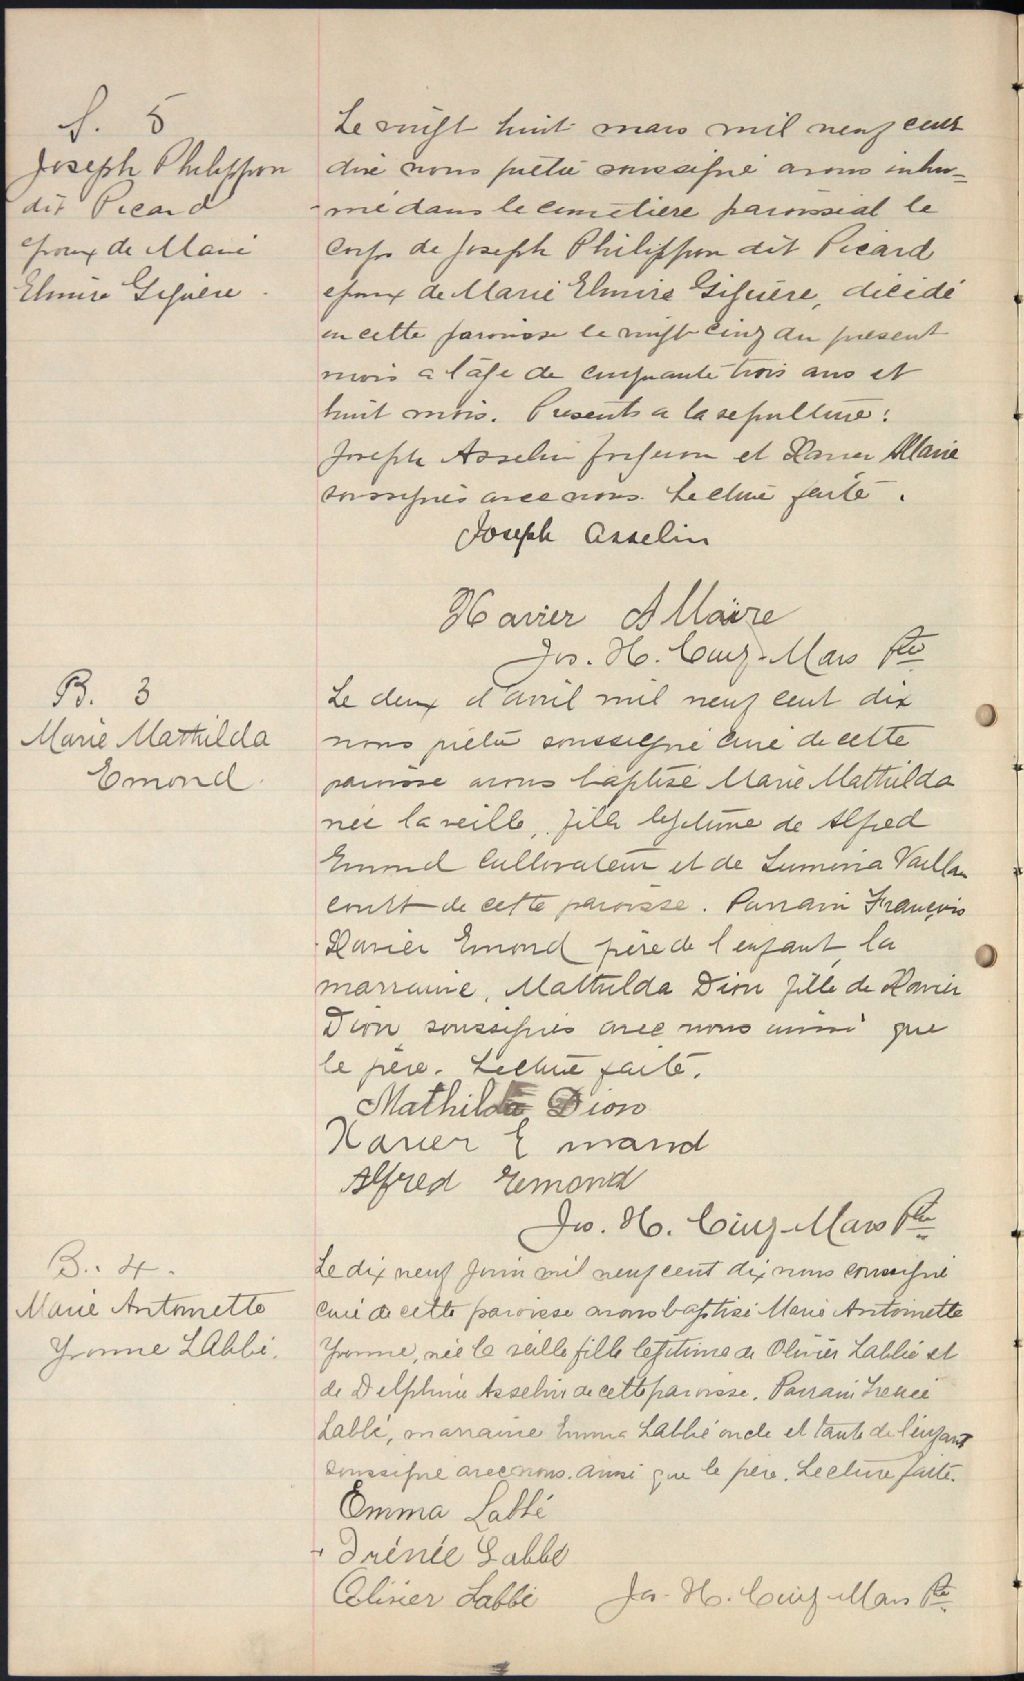 S. 5
Joseph Philippon
dit Picard
epoux de Marie
Elmire Giguère.
Le vingt huit mars mil neuf cent
dix nous prêtre soussigné avons inhu=
mé dans le cimetière paroissial le
corps de Joseph Philippon dit Picard
epoux de Marie Elmire Giguère, décédé
en cette paroisse le vingt cinq du présent
mois a l'âge de cinquante trois ans et
huit mois. Presents a la sepulture:
Joseph Asselin et Xavier Allaire
soussignés avec nous. Lecture faite.
Joseph Asselin
Xavier Allaire
Jos. H. Cinq-Mars Ptre
B. 3
Marie Mathilda
Emond.
Le deux d'avril mil neuf cent dix
nous prêtre soussigné curé de cette
paroisse avons baptisé Marie Mathilda
née la veille, fille légitime de Alfred
Emond cultivateur et de Lumina Vaillan
court de cette paroisse. Parrain François
Xavier Emond père de l'enfant, la
marraine, Mathilda Dion fille de Xavier
Dion, soussignés avec nous ainsi que
le père. Lecture faite.
Mathilda Dion
Xavier Emond
Alfred Emond
Jos. H. Cinq-Mars Ptre
B. 4.
Marie Antoinette
Yvonne Labbé.
Le dix neuf juin mil neuf cent dix nous soussigné
curé de cette paroisse avons baptisé Marie Antoinette
Yvonne, née la veille fille légitime de Olivier Labbé et
de Delphine Asselin de cette paroisse. Parrain Irenée
Labbé, marraine Emma Labbé oncle et tante de l'enfant
soussigné avec nous. ainsi que le père. Lecture faite.
Emma Labbé
Irénée Labbé
Olivier Labbé Jos. H. Cinq-Mars Ptre